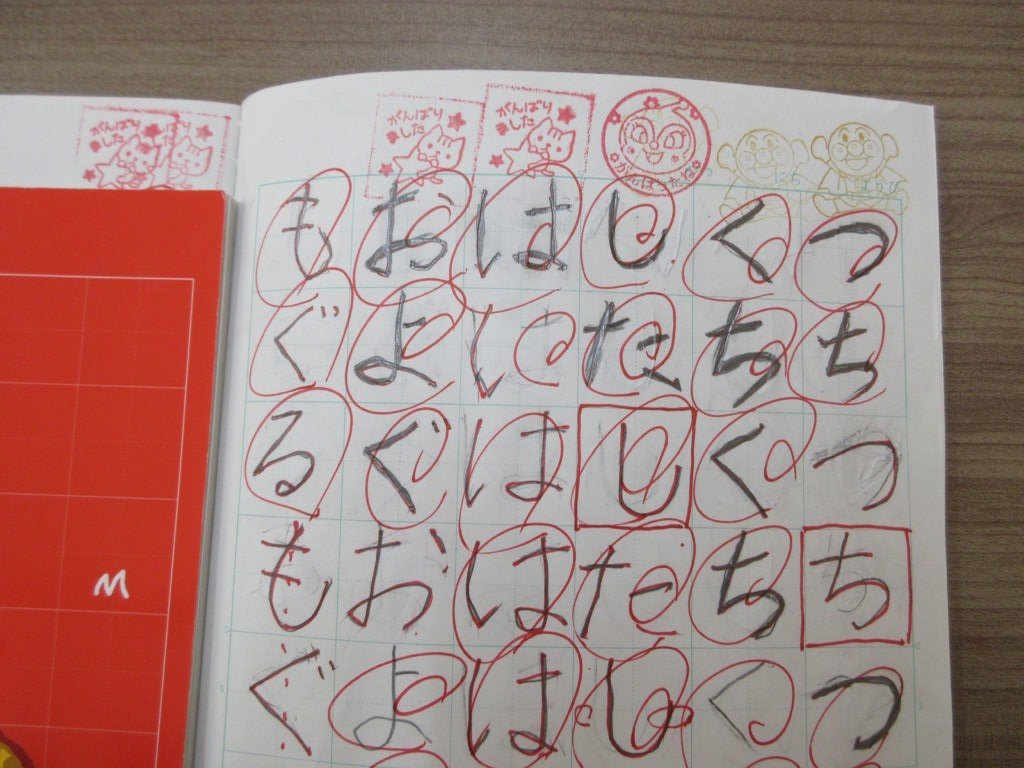 がんばり
ました
がんばり
ました
がんばり
ました
つちつちつ
くちくちく
したしたし
はにははは
およぐおよ
もぐるもぐ
M